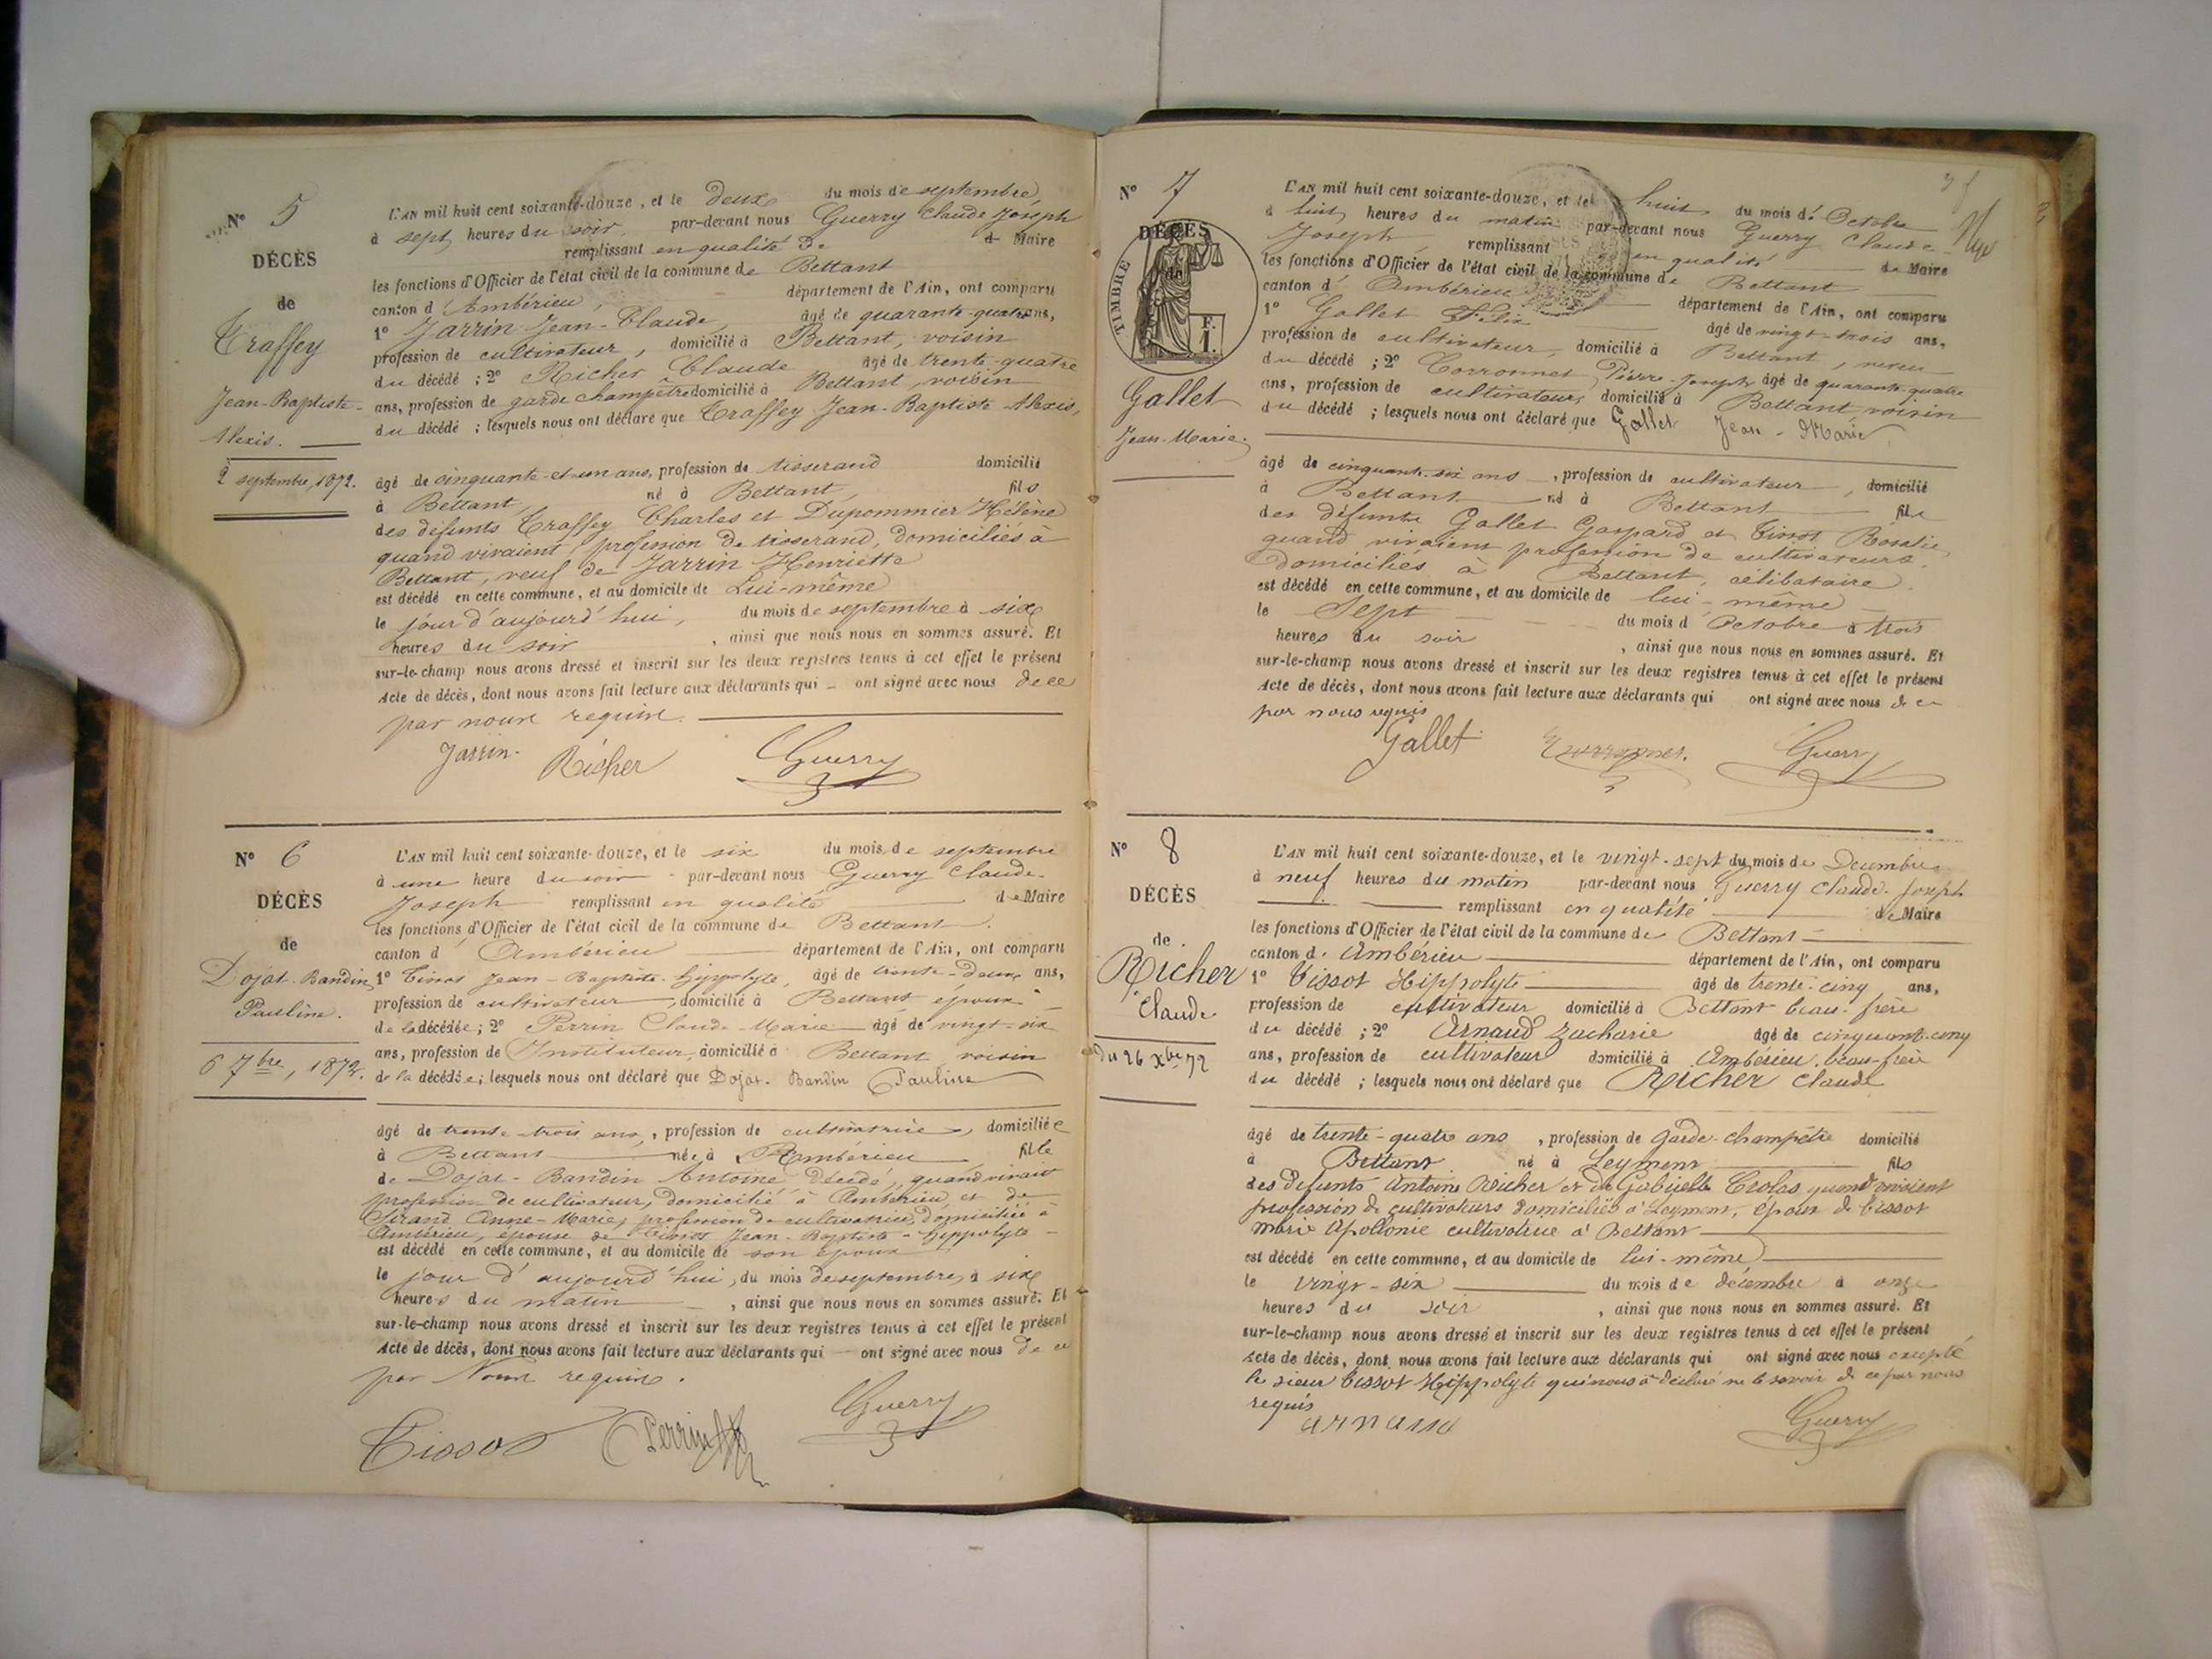 N° 5
DÉCÈS
de
Traffey
Jean-Baptiste-
Alexis.
2 septembre, 1872.
L'AN mil huit cent soixante-douze, et le deux du mois de septembre,
à sept heures du soir par-devant nous Guerry Claude Joseph
remplissant en qualité de Maire
les fonctions d'Officier de l'état civil de la commune de Bettant
canton d'Ambérieu, département de l'Ain, ont comparu
1° Jarrin Jean-Claude, âgé de quarante-quatre ans,
profession de cultivateur, domicilié à Bettant, voisin
du décédé ; 2° Richer Claude âgé de trente-quatre
ans, profession de garde champêtre domicilié à Bettant, voisin
du décédé ; lesquels nous ont déclaré que Traffey Jean-Baptiste-Alexis,
âgé de cinquante-et-un ans, profession de tisserand domicilié
à Bettant, né à Bettant, fils
des défunts Traffey Charles et Dupommier Hélène
quand vivaient profession de tisserand, domiciliés à
Bettant, veuf de Jarrin Henriette
est décédé en cette commune, et au domicile de Lui-même
le jour d'aujourd'hui, du mois de septembre à six
heures du soir, ainsi que nous nous en sommes assuré. Et
sur-le-champ nous avons dressé et inscrit sur les deux registres tenus à cet effet le présent
Acte de décès, dont nous avons fait lecture aux déclarants qui – ont signé avec nous de ce
par nous requis.
Jarrin. Richer Guerry
N° 6
DÉCÈS
de
Dojat-Bandin
Pauline.
6 7bre, 1872.
L'AN mil huit cent soixante-douze, et le six du mois de septembre
à une heure du soir par-devant nous Guerry Claude-
Joseph remplissant en qualité de Maire
les fonctions d'Officier de l'état civil de la commune de Bettant
canton d'Ambérieu département de l'Ain, ont comparu
1° Tissot Jean-Baptiste-Hippolyte, âgé de trente-deux ans,
profession de cultivateur, domicilié à Bettant époux
de la décédée ; 2° Perrin Claude-Marie âgé de vingt-six
ans, profession de Instituteur, domicilié à Bettant voisin
de la décédée ; lesquels nous ont déclaré que Dojat-Bandin Pauline
âgé de trente-trois ans, profession de cultivatrice, domiciliée
à Bettant née à Ambérieu fille
de Dojat-Bandin Antoine décédé, quand vivait
profession de cultivateur, domicilié à Ambérieu et de
Sirand Anne-Marie, profession de cultivatrice, domiciliée à
Ambérieu, épouse de Tissot Jean-Baptiste-Hippolyte
est décédé en cette commune, et au domicile de son époux
le jour d'aujourd'hui, du mois de septembre, à six
heures du matin, ainsi que nous nous en sommes assuré. Et
sur-le-champ nous avons dressé et inscrit sur les deux registres tenus à cet effet le présent
Acte de décès, dont nous avons fait lecture aux déclarants qui — ont signé avec nous de ce
par Nous requis.
Tissot Perrin Guerry
N° 7
DÉCÈS
de
TIMBRE
F.
1.
Gallet
Jean-Marie.
L'AN mil huit cent soixante-douze, et le huit du mois d'Octobre
à huit heures du matin par-devant nous Guerry Claude-
Joseph remplissant en qualité de Maire
les fonctions d'Officier de l'état civil de la commune de Bettant
canton d'Ambérieu département de l'Ain, ont comparu
1° Gallet Félix âgé de vingt-trois ans,
profession de cultivateur, domicilié à Bettant, neveu
du décédé ; 2° Corronnet Pierre-Joseph âgé de quarante-quatre
ans, profession de cultivateur, domicilié à Bettant, voisin
du décédé ; lesquels nous ont déclaré que Gallet Jean-Marie
âgé de cinquante-six ans, profession de cultivateur, domicilié
à Bettant né à Bettant fils
des défunts Gallet Gaspard et Tissot Rosalie,
quand vivaient profession de cultivateurs,
domiciliés à Bettant, célibataire.
est décédé en cette commune, et au domicile de lui-même
le Sept du mois d'Octobre à trois
heures du soir, ainsi que nous nous en sommes assuré. Et
sur-le-champ nous avons dressé et inscrit sur les deux registres tenus à cet effet le présent
Acte de décès, dont nous avons fait lecture aux déclarants qui ont signé avec nous de ce
par nous requis
Gallet Corronnet. Guerry
N° 8
DÉCÈS
de
Richer
Claude
Du 26 Xbre 72
L'AN mil huit cent soixante-douze, et le vingt-sept du mois de Decembre
à neuf heures du matin par-devant nous Guerry Claude-Joseph
remplissant en qualité de Maire
les fonctions d'Officier de l'état civil de la commune de Bettant
canton d'Ambérieu département de l'Ain, ont comparu
1° Tissot Hippolyte âgé de trente-cinq ans,
profession de cultivateur domicilié à Bettant beau-frère
du décédé ; 2° Arnaud Zacharie âgé de cinquante-cinq
ans, profession de cultivateur domicilié à Ambérieu, beau-frère
du décédé ; lesquels nous ont déclaré que Richer Claude
âgé de trente-quatre ans, profession de Garde-champêtre domicilié
à Bettant né à Leyment fils
des défunts Antoine Richer et de Gabrielle Croles quand vivaient
profession de cultivateurs domiciliés à Leyment, époux de Tissot
Marie Apollonie cultivatrice à Bettant
est décédé en cette commune, et au domicile de lui-même
le vingt-six du mois de décembre à onze
heures du soir, ainsi que nous nous en sommes assuré. Et
sur-le-champ nous avons dressé et inscrit sur les deux registres tenus à cet effet le présent
Acte de décès, dont nous avons fait lecture aux déclarants qui ont signé avec nous excepté
le sieur Tissot Hippolyte qui nous a déclaré ne le savoir de ce par nous
requis
arnaud Guerry